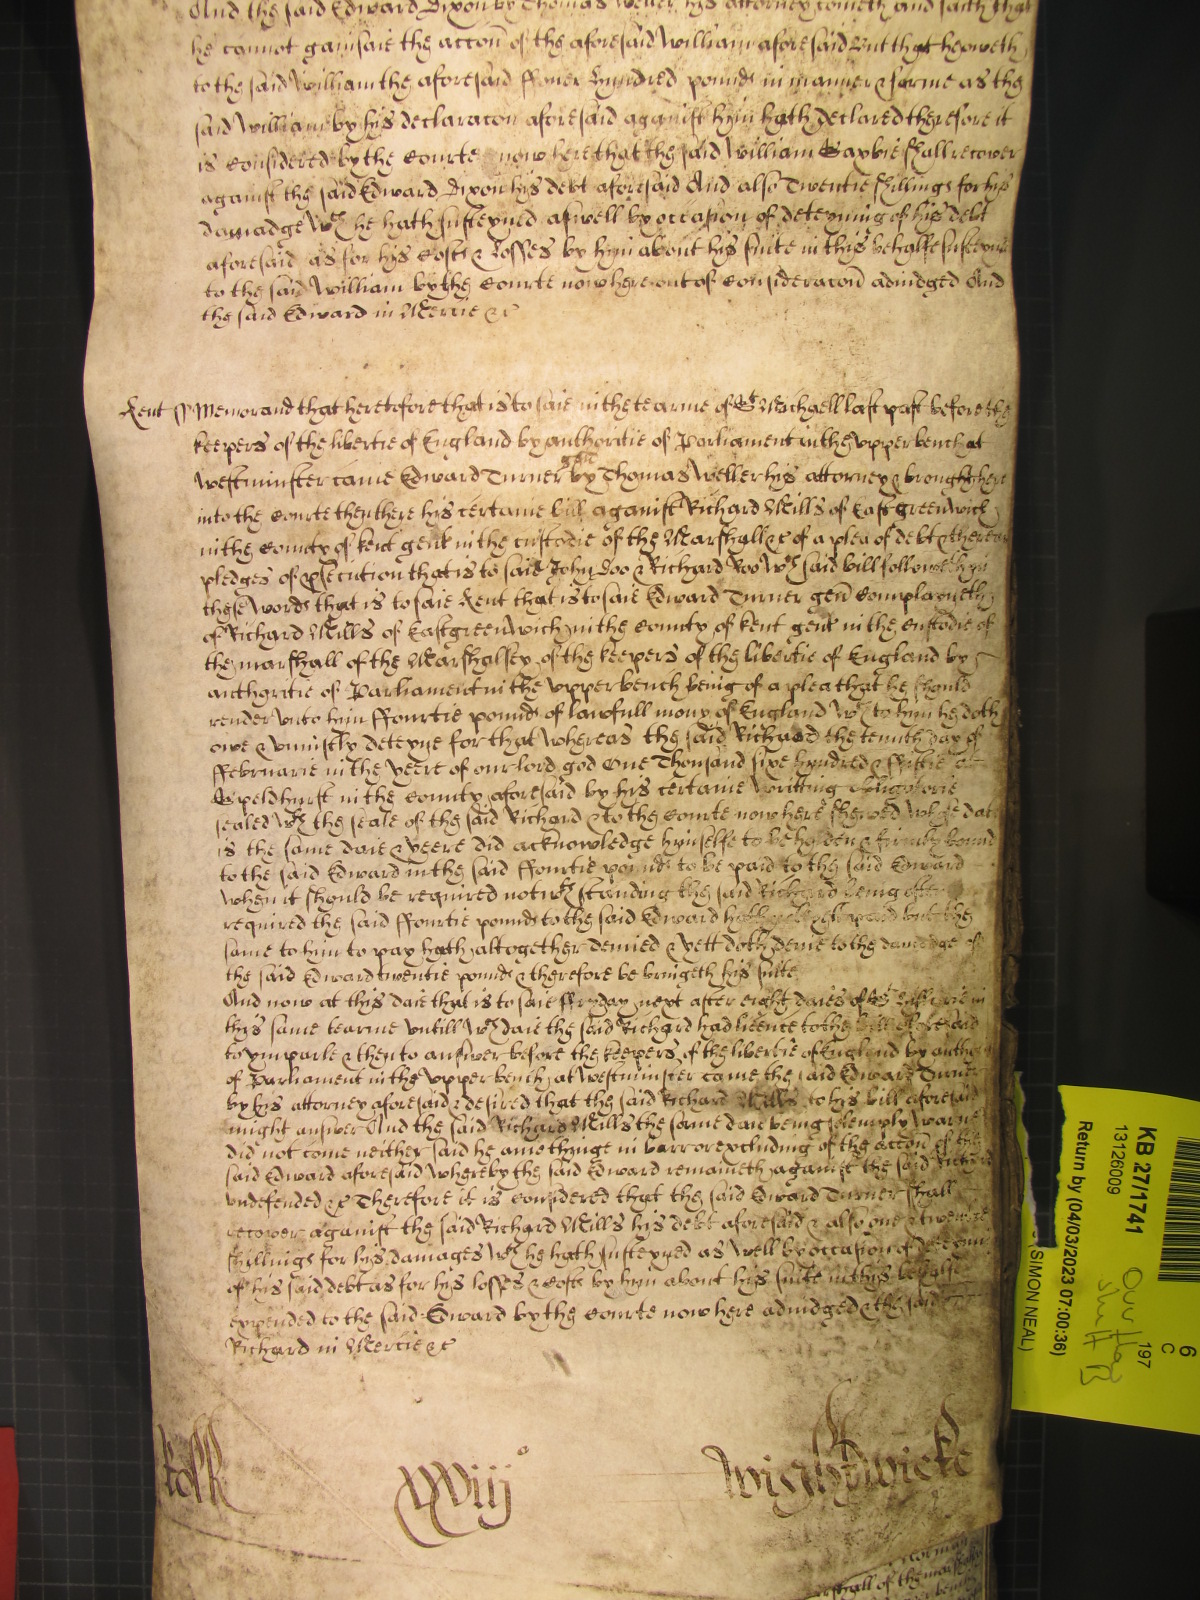 And the said Edward Dixon by Thomas Weller his attorney cometh and saith that
he cannot gainsaie the accon of the aforesaid William aforesaid But that he oweth
to the said William the aforesaid ffower hundred pounds in manner & forme as the
said William by his declaracon aforesaid against hym hath declared therefore it
is considered by the Courte now here that the said William Saxbie shall recover
against the said Edward Dixon his debt aforesaid And also Twentie shillings for his
damadge wch he hath susteyned aswell by occasion of deteyning of his debt
aforesaid as for his Costs & Losses by hym about his suite in this behalfe susteyned
to the said William by the Courte now here out of Consideracon adiudged And
the said Edward in Mercie &c
Kent ss Memorand that heretofore that is to saie in the tearme of St Michaell last past before the
keepers of the libertie of England by authoritie of Parliament in the upper bench at
Westminster came Edward Turner gen by Thomas Weller his attorney & brought here
into the Courte then there his certaine bill against Richard Mills of Eastgreenwich
in the County of Kent gent in the custodie of the Marshall &c of a plea of debt & there are
pledges of psecution that is to said John Doo & Richard Roo wch said bill followeth in
these words that is to saie Kent that is to saie Edward Turner gen Complayneth
of Richard Mills of Eastgreenwich in the County of Kent gent in the Custodie of
the marshall of the Marshalsey of the keepers of the libertie of England by
authoritie of Parliament in the upper bench being of a plea that he should
render unto hym ffourtie pounds of lawfull mony of England wch to hym he doth
owe & uniustly deteyne for that whereas the said Richard the tennth day of
ffebruarie in the yeere of our lord god One Thousand sixe hundred & ffiftie at
Speldhurst in the County aforesaid by his certaine writting Obligatorie
sealed wth the seale of the said Richard & to the Courte now here shewed whose date
is the same daie & yeere did acknowledge hymselfe to be holden & firmly bound
to the said Edward in the said ffourtie pounds to be paid to the said Edward
when it should be required notwthstanding the said Richard being often
required the said ffourtie pounds to the said Edward hath not yet paid but the
same to him to pay hath altogether denied & yett doth denie to the damadge of
the said Edward twentie pounds & therefore he bringeth his suite
And now at this daie that is to saie ffryday next after eight daies of St Hillarie in
this same tearme untill wch daie the said Richard had licence to the bill aforesaid
to ymparle & then to answer before the keepers of the libertie of England by autho
of Parliament in the upper bench at Westminster came the said Edward Turner
by his attorney aforesaid & desired that the said Richard Mills to his bill aforesaid
might answer And the said Richard Mills the same daie being solemply warned
did not come neither said he ame thinge in barr or excluding of the accon of the
said Edward aforesaid whereby the said Edward remaineth against the said Richard
undefended &c Therefore it is considered that the said Edward Turner shall
recover against the said Richard Mills his debt aforesaid & also one & twentie
shillings for his damages wch he hath susteyned as well by occasion of deteyning
of his said debt as for his losses & costs by hym about his suite in this behalfe
expended to the said Edward by the Courte now here adiudged & the said
Richard in Mercie &c
Roll xxviijo Wightwicke
norman
shall of the marshall
KB 27/1741
13126609
Return by (04/03/2023 07:00:36)
SIMON NEAL)
197
6
C